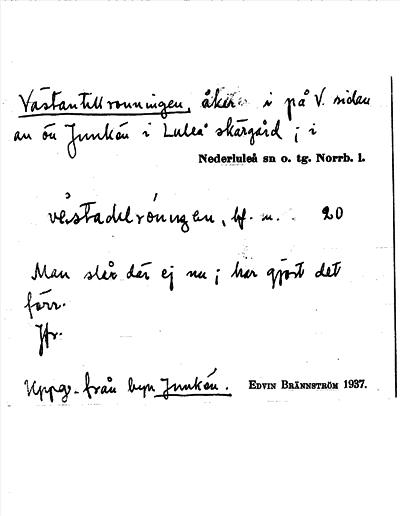 Västantillronningen, åker i på V. sidan
av ön Junkön i Luleå skärgård ; i
Nederluleå sn o. tg. Norrb. l.
bf. 20
Man slår där ej nu ; har gjort det
förr.
Jfr.
Uppg. från byn Junkön. EDVIN BRÄNNSTRÖM 1937.